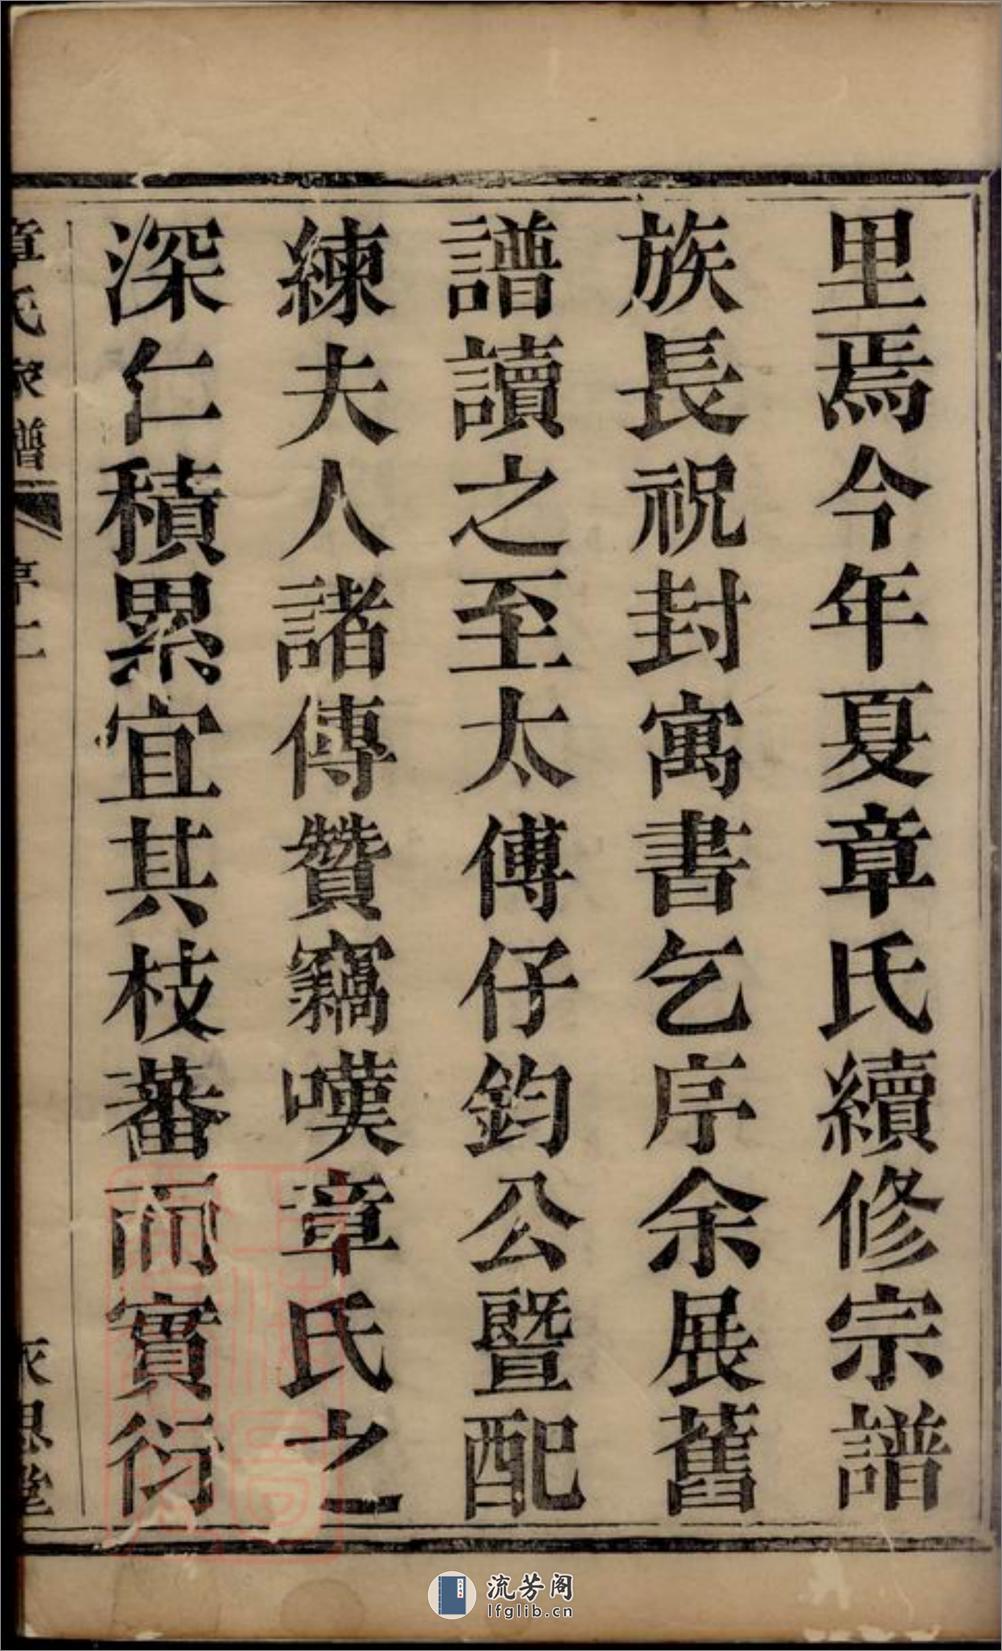 里焉今年夏章氏續修宗譜
族長祝封寓書乞序余展舊
譜讀之至太傅仔鈞公暨配
練夫人諸傳贊竊嘆章氏之
深仁積累宜其枝蕃而實衍
章氏家譜
序二
思堂
流芳阁
lfglib.cn